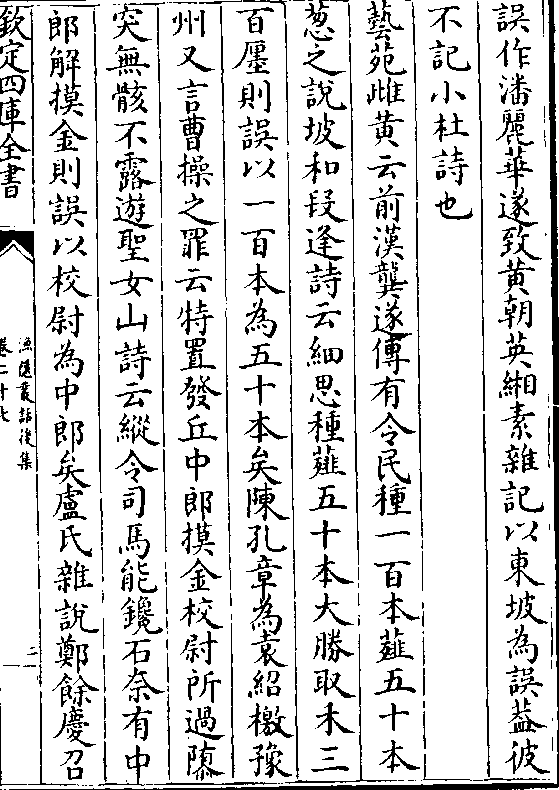 誤作潘麗華遂致黄朝英緗素雜記以東坡為誤葢彼
不記小杜詩也
藝苑雌黄云前漢龔遂傳有令民種一百本薤五十本
葱之說坡和段逢詩云細思種薤五十本大勝取禾三
百廛則誤以一百本為五十本矣陳孔章為袁紹檄豫
州又言曹操之罪云特置發丘中郎摸金校尉所過隳
突無骸不露遊聖女山詩云縱令司馬能鑱石奈有中
郎解摸金則誤以校尉為中郎矣盧氏雜說鄭餘慶召
欽定四庫全書
漁隱叢話後集
卷二十七
三